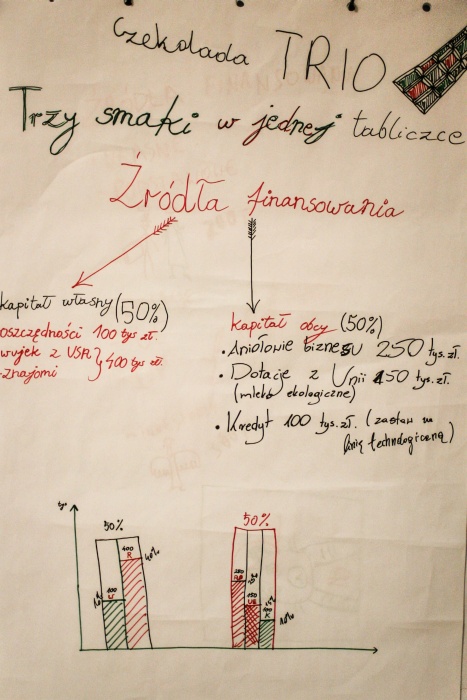 Czekolada TRIO
Trzy smaki w jednej tabliczce
Źródła finansowania
kapitał własny (50%)
oszczędności 100 tyś zł.
wujek z USA } 400 tyś zł.
znajomi
kapitał obcy (50%)
• Aniołowie biznesu 250 tyś. zł.
• Dotacje z Unii 150 tyś. zł.
(mleko ekologiczne)
• Kredyt 100 tyś. zł. (zastaw na
linię technologiczną)
50%
400
R
40%
100
50%
250
150
UE
K
10%